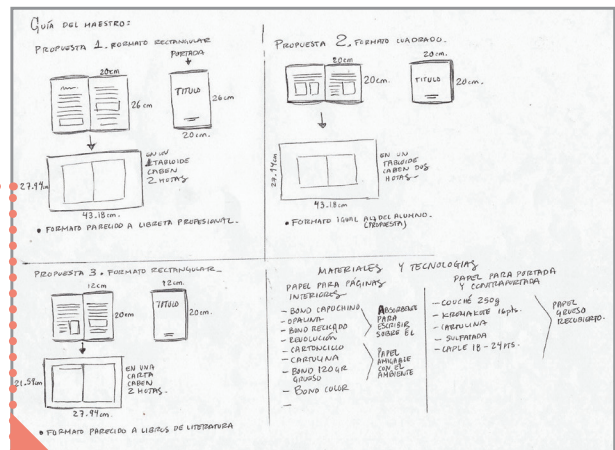 GUÍA DEL MAESTRO:
PROPUESTA 1. FORMATO RECTANGULAR
PORTADA
20cm
26 cm
TITULO
26cm
20cm.
EN UN
TABLOIDE
CABEN
2 HOJAS
27.94cm
43.18 cm.
• FORMATO PARECIDO A LIBRETA PROFESIONAL.
PROPUESTA 2. FORMATO CUADRADO.
20cm
20cm.
20cm.
TITULO
20cm.
EN UN
TABLOIDE
CABEN DOS
HOJAS.
27.94cm
43.18 cm.
• FORMATO IGUAL AL DEL ALUMNO.
(PROPUESTA)
PROPUESTA 3. FORMATO RECTANGULAR
12cm
12cm.
20cm.
TITULO
20cm.
EN UNA
CARTA
CABEN
2 HOJAS.
21.59cm
27.94cm.
• FORMATO PARECIDO A LIBROS DE LITERATURA
MATERIALES Y TECNOLOGIAS
PAPEL PARA PÁGINAS
INTERIORES
- BOND CAPUCHINO
- OPALINA
- BOND RECICLADO
- REVOLUCIÓN
- CARTONCILLO
- CARTULINA
- BOND 120 GR
GRUESO
- BOND COLOR
ABSORBENTE
PARA
ESCRIBIR
SOBRE EL
PAPEL
AMIGABLE
CON EL
AMBIENTE
PAPEL PARA PORTADA
Y CONTRAPORTADA
- COUCHÉ 250g
- KROMAKOTE 16pts.
- CARTULINA
- SULFATADA
- CAPLE 18-24PTS.
PAPEL
GRUESO
RECUBIERTO.